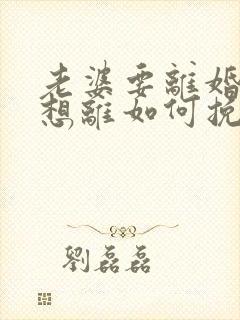 老婆要離婚
想離如何挽
劉磊磊